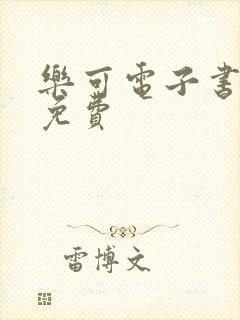 樂可電子書
免費
雷博文